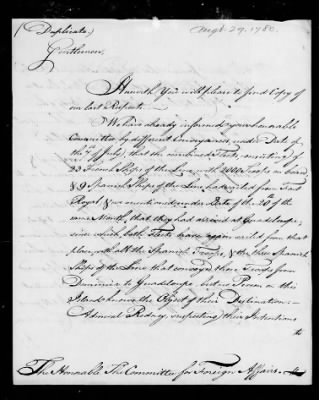 (Duplicate)
Augst. 29. 1780.
Gentlemen.
Herewith You will please to find Copy of
our last Respects.
We have already informed your honorable
Committee by different Conveyances, under Date of
the 7th of July, that the combined Fleets, consisting of
23 French Ships of the Line, with 2000 Troops on board
& 9 Spanish Ships of the Line, had sailed from Fort
Royal, & we mentioned under Date of the 20th of the
same Month, that they had arrived at Guadaloupe,
since which both Fleets have again sailed from that
place with all the Spanish Troops, & the three Spanish
Ships of the Line that conveyed those Troops from
Dominica to Guadaloupe, but no Person on this
Island knows the Object of their Destination:—
Admiral Rodney, suspecting their Intentions
to
The Honorable The Committee for Foreign Affairs.